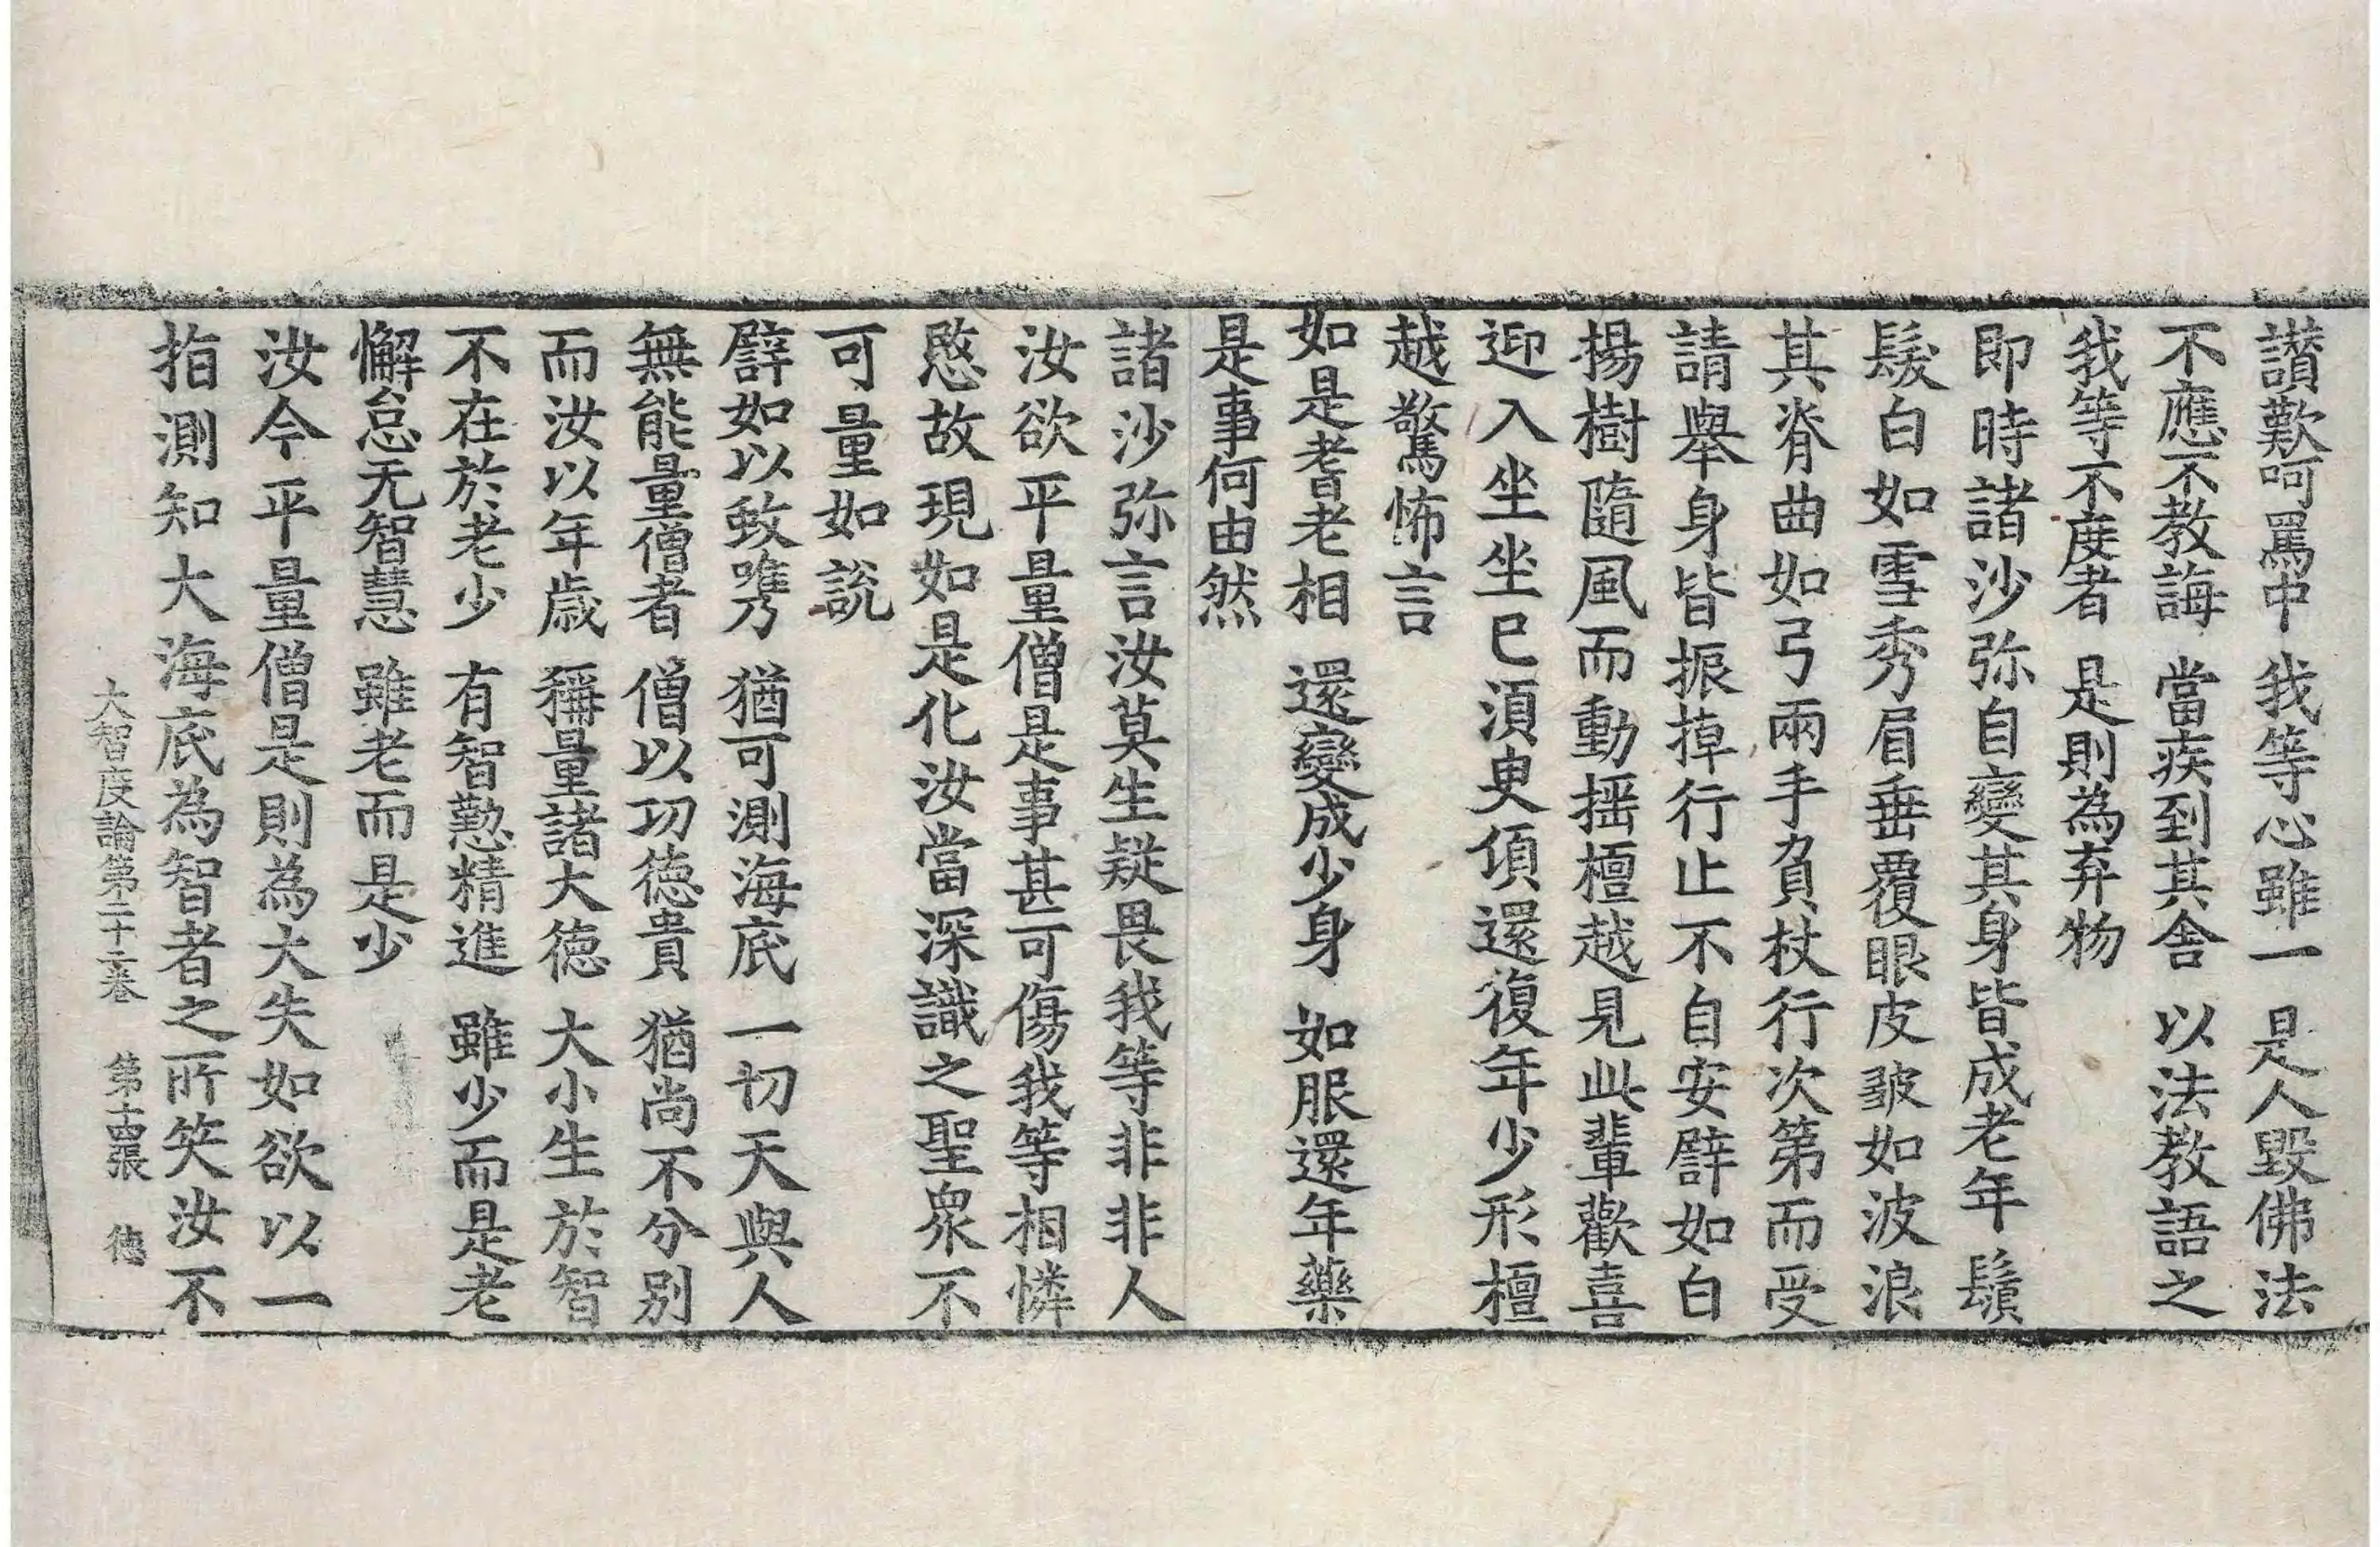 讃歎呵罵中 我等心雖一 是人毀佛法
不應不教誨 當疾到其舍 以法教語之
我等不度者 是則為弃物
即時諸沙弥自變其身皆成老年鬚
髮白如雪秀眉垂覆眼皮皺如波浪
其脊曲如弓兩手負杖行次第而受
請舉身皆振掉行止不自安譬如白
揚樹隨風而動揺檀越見此輩歡喜
迎入坐坐已湏臾傾還復年少形檀
越驚怖言
如是耆老相 還變成少身 如服還年藥
是事何由然
諸沙弥言汝莫生疑畏我等非非人
汝欲平量僧是事甚可傷我等相憐
愍故現如是化汝當深識之聖衆不
可量如說
譬如以蚊㭰 猶可測海底 一切天與人
無能量僧者 僧以功德貴 猶尚不分別
而汝以年歲 稱量諸大德 大小生於智
不在於老少 有智懃精進 雖少而是老
懈怠无智慧 雖老而是少
汝今平量僧是則為大失如欲以一
指測知大海底為智者之所笑汝不
大智度論第二十二卷 第十四張 德